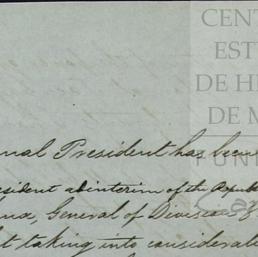 CENT
EST
DE H
DE M
FUN
Ca
nal President has been
esident ad interim of the Repub
na, General of Division
t taking into considerati